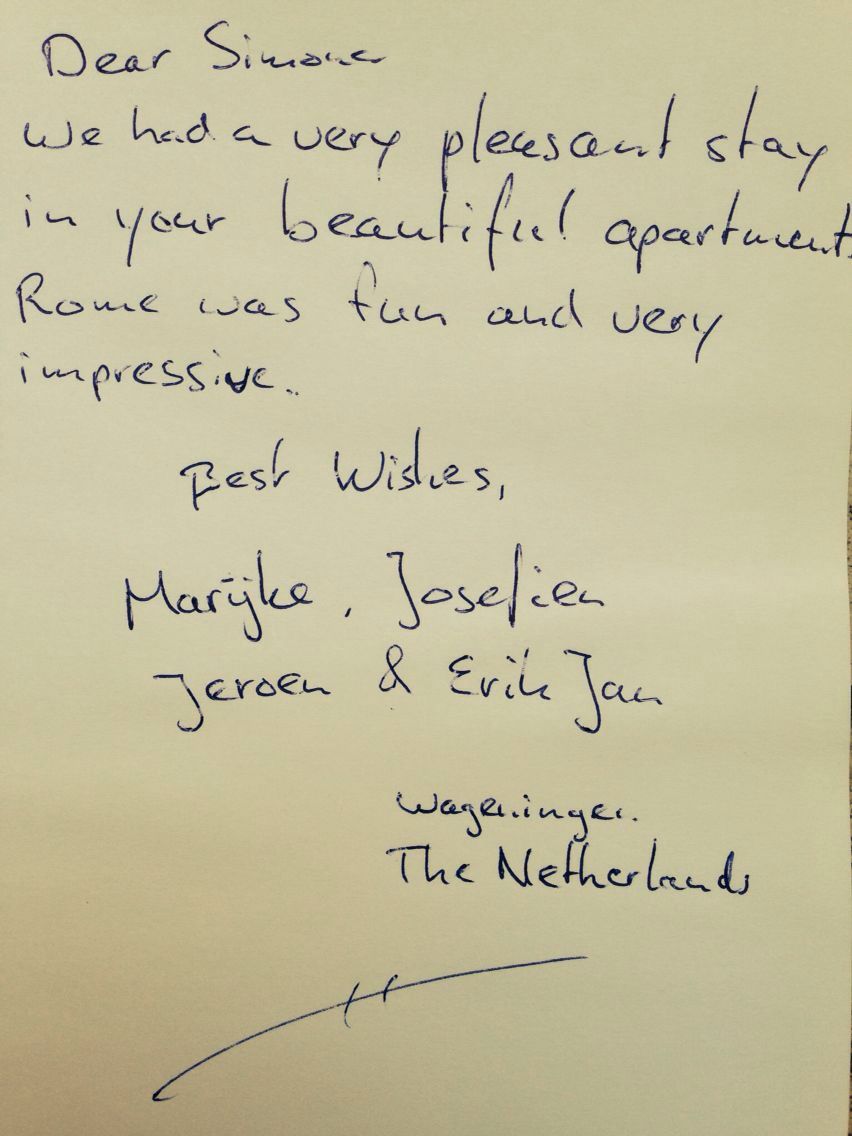 Dear Simone
we had a very pleasant stay
in your beautiful apartment
Rome was fun and very
impressive.
Best Wishes,
Marijke, Josefien
Jeroen & Erik Jan
Wageningen.
The Netherlands